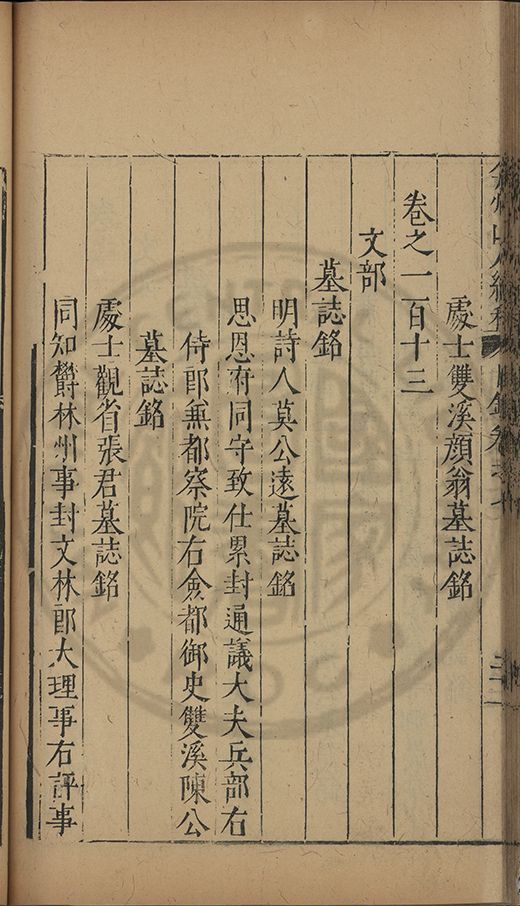 處士雙溪顏翁墓誌銘
卷之一百十三
文部
墓誌銘
明詩人莫公遠墓誌銘
思恩府同守致仕累封通議大夫兵部右
侍郎兼都察院右僉都御史雙溪陳公
墓誌銘
處士觀省張君墓誌銘
同知欝林州事封文林郎大理事右評事